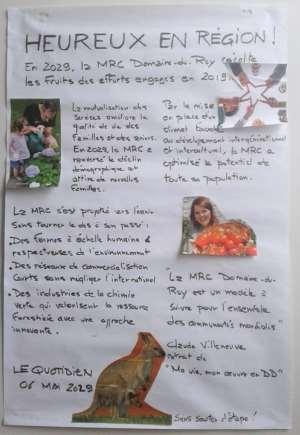 HEUREUX EN RÉGION !
En 2029, la MRC Domaine-du-Roy récolte
les fruits des efforts engagés en 2019.
La mutualisation des
services améliore la
qualité de vie des
familles et des aînés.
En 2029, la MRC a
renversé le déclin
démographique et
attire de nouvelles
familles.
Par la mise
en place d'un
climat
au développement intergénérationnel
et interculturel, la MRC a
optimisé le potentiel de
toute sa population.
La MRC s'est projetée vers l'avenir
sans tourner le dos à son passé :
- Des fermes à échelle humaine &
respectueuses de l'environnement
- Des réseaux de commercialisation
courts sans négliger l'international
- Des industries de la chimie
verte qui valorisent la ressource
forestière avec une approche
innovante.
"La MRC Domaine-du-
Roy est un modèle à
suivre pour l'ensemble
des communautés mondiales"
Claude Villeneuve
extrait de
"Ma vie, mon œuvre en DD"
LE QUOTIDIEN
06 MAI 2029
Sans sauter d'étape !